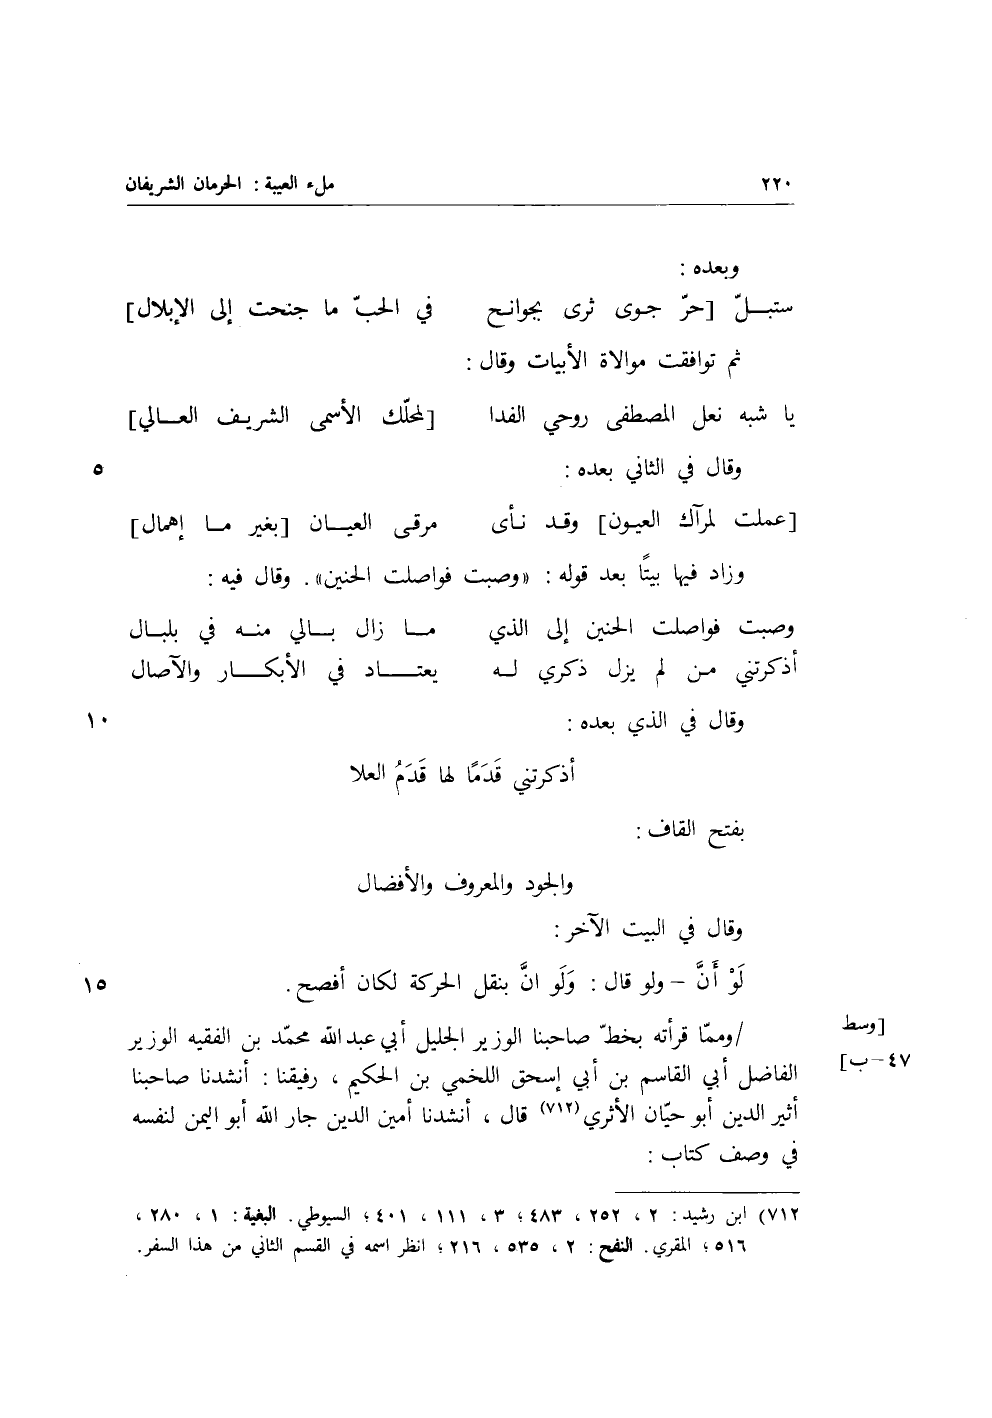 ٢٢٠ ملء العيبة : الحرمان الشريفان
وبعده :
ستبــلّ [حرّ جوى ثرى بجوانح في الحبّ ما جنحت إلى الإبلال]
ثم توافقت موالاة الأبيات وقال :
يا شبه نعل المصطفى روحي الفدا [لمحلّك الأسمى الشريف العالي]
وقال في الثاني بعده : ٥
[عملت لمرآك العيون] وقد نأى مرقى العيان [بغير ما إهمال]
وزاد فيها بيتًا بعد قوله : «وصبت فواصلت الحنين». وقال فيه :
وصبت فواصلت الحنين إلى الذي ما زال بالي منه في بلبال
أذكرتني من لم يزل ذكري له يعتاد في الأبكار والآصال
وقال في الذي بعده : ١٠
أذكرتني قَدَمًا لها قَدَمُ العلا
بفتح القاف :
والجود والمعروف والأفضال
وقال في البيت الآخر :
لَوْ أَنَّ – ولو قال : وَلَو انَّ بنقل الحركة لكان أفصح . ١٥
/وممّا قرأته بخطّ صاحبنا الوزير الجليل أبي عبدالله محمّد بن الفقيه الوزير [وسط
الفاضل أبي القاسم بن أبي إسحق اللخمي بن الحكيم ، رفيقنا : أنشدنا صاحبنا ٤٧–ب]
أثير الدين أبو حيّان الأثري(٧١٢) قال ، أنشدنا أمين الدين جار الله أبو اليمن لنفسه
في وصف كتاب :
٧١٢) ابن رشيد : ٢ ، ٢٥٢ ، ٤٨٣ ؛ ٣ ، ١١١ ، ٤٠١ ؛ السيوطي . البغية : ١ ، ٢٨٠ ،
٥١٦ ؛ المقري . النفح : ٢ ، ٥٣٥ ، ٢١٦ ؛ انظر اسمه في القسم الثاني من هذا السفر .